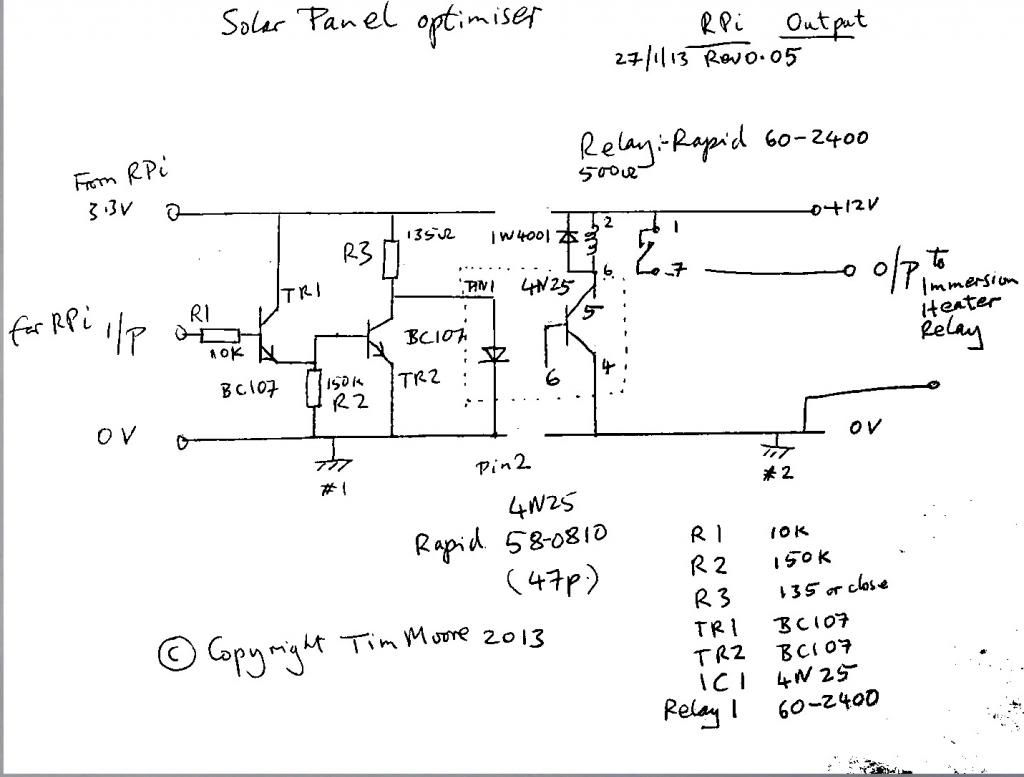 Solar Panel optimiser
RPi Output
27/1/13 Rev 0.05
Relay:- Rapid 60-2400
500Ω
From RPi
3.3V
+12V
R3
135Ω
1N4001
2
1
7
6
O/P to
Immersion
Heater
Relay
TR1
PIN1
4N25
5
for RPi I/P
R1
10K
BC107
BC107
150K
R2
TR2
6
4
0V
0V
#1
Pin2
#2
4N25
Rapid 58-0810
(47p)
R1 10K
R2 150K
R3 135 or close
TR1 BC107
TR2 BC107
IC1 4N25
Relay 1 60-2400
© Copyright Tim Moore 2013